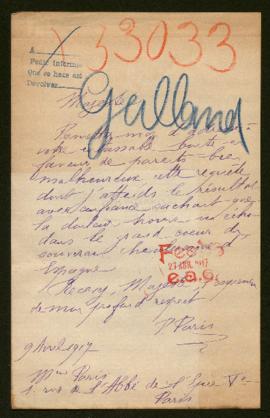 X 33033
A
Pedir informe
Que se hace así
Devolver
Galland
Majesté
Permettez-moi d'adresser
votre inépuisable bonté en
faveur de parents bien
malheureux cette requête
dont j'attends le résultat
avec confiance sachant que
la douleur trouve un écho
dans le grand coeur du
souverain d'
Espagne
Fecho
27 ABR. 917
Recevez, Majesté, l'expression
de mon profond respect
P Paris
9 Avril 1917
Mme Paris
rue de l'Abbé de l'Epée Ve
Paris